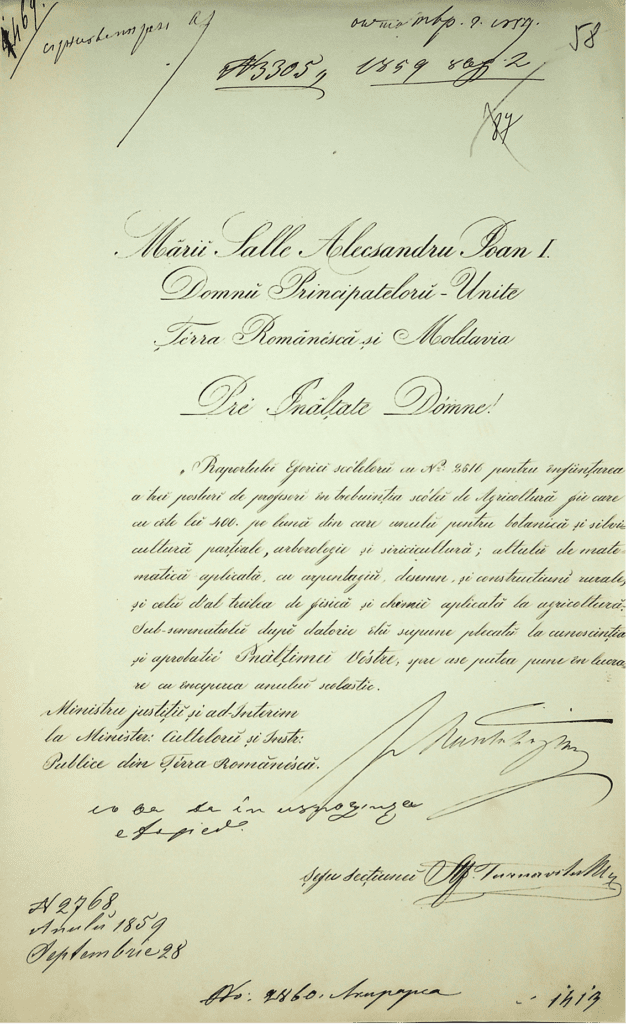 58
No 3305, 1859
87
Mării Salle Alecsandru Ioan I.
Domnŭ Principatelorŭ-Unite
Țerra Românéscă și Moldavia
Pré Inălțate Dómne!
Raportulŭ Eforiei scólelorŭ cu No 2516 pentru înființarea
a trei posturi de profesori în trebuința scólei de Agricultură fie care
cu cîte lei 400. pe lună din care unulŭ pentru botanică și silvi-
cultură parțiale, arborologie și siricicultură; altulŭ de mate-
matică aplicată, cu arpentagiŭ, desemn, și construcțiunĭ rurale,
și celŭ d'al treilea de fisică și chimie aplicată la agricultură.
Sub-semnatulŭ după datorie ilŭ supune plecatŭ la cunoscința
și aprobația Inălțimei Vóstre, spre ase putea pune în lucra-
re cu începerea anului scolastic.
Ministru justiții și ad Interim
la Minister: Cultelorŭ și Instr:
Publice din Țerra Românéscă.
Șefu secțiunei
N 2768
Anulŭ 1859
Septembrie 28
No: 2860.